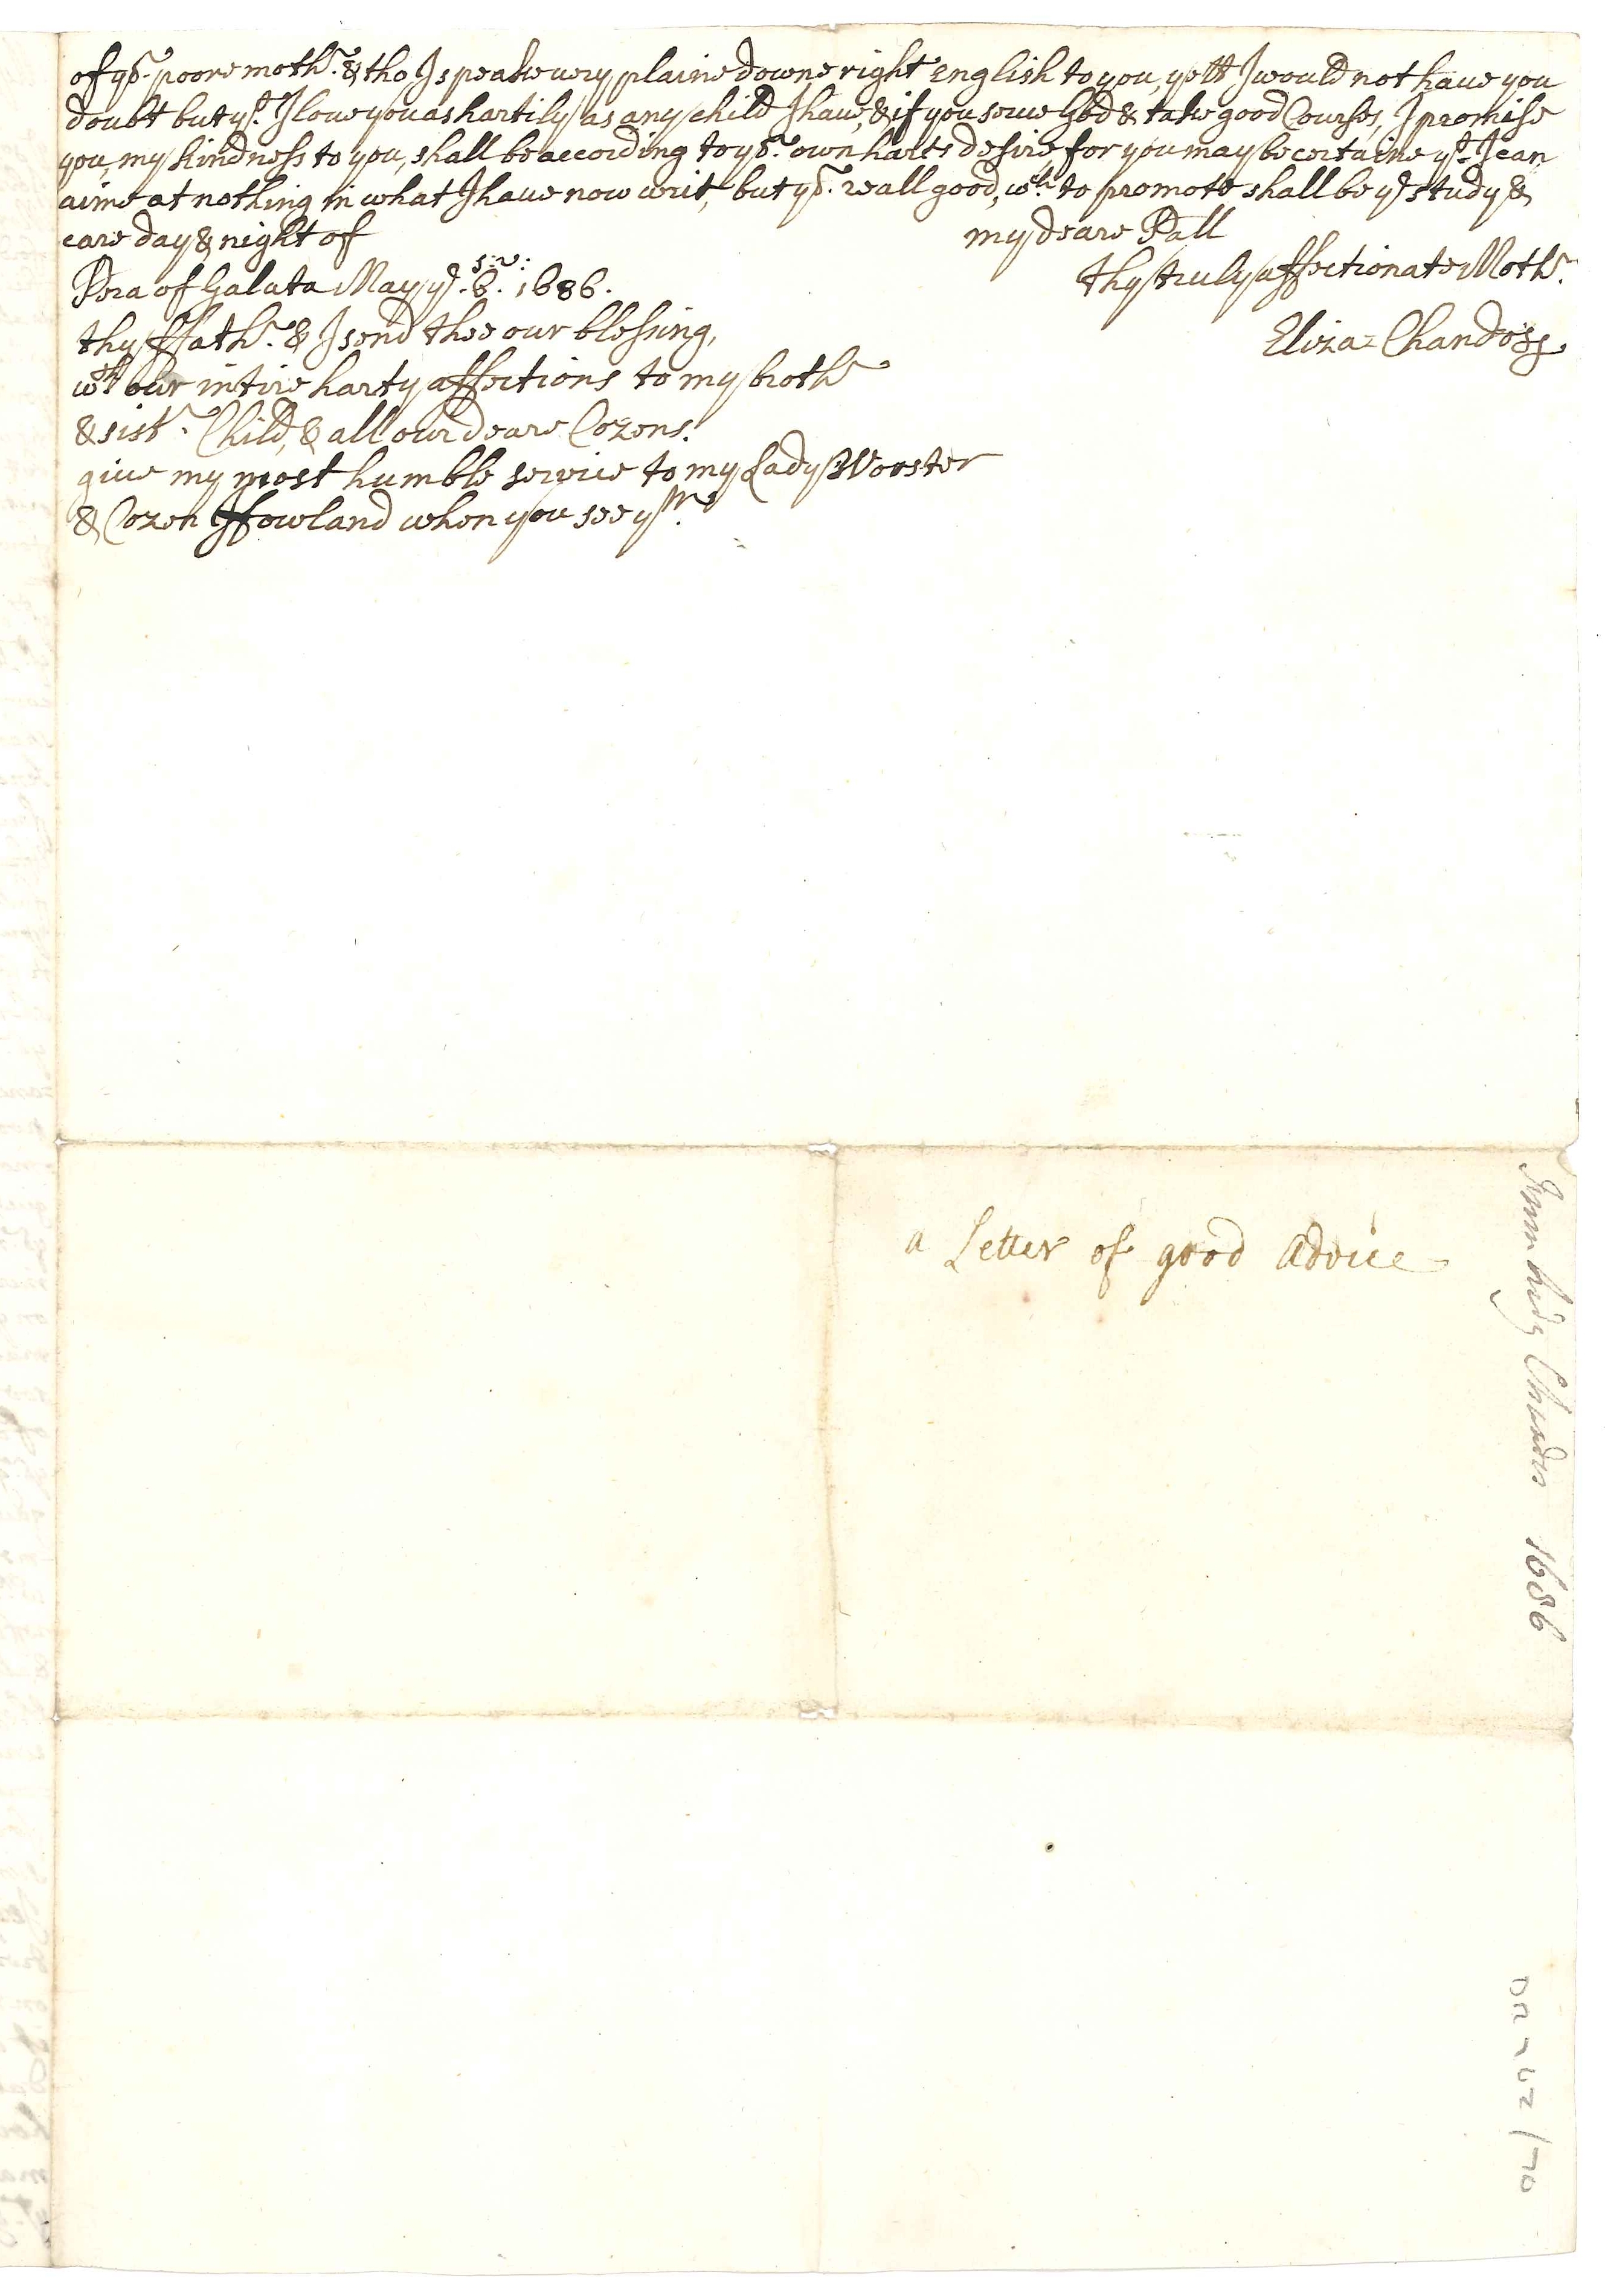 of yor. poore mothr. & tho I speake very plaine downe right English to you, yett I would not have you
doubt but yt. I love you as hartily as any child I have, & if you serve God & take good Courses, I promise
you, my kindness to you, shall be according to yor. own harts desire, for you may be certaine yt. I can
aime at nothing in what I have now writ, but yor. reall good, wch. to promote shall be ye study &
care day & night of
my deare Pall
thy truly affectionate Mothr.
Eliza= Chandoss
Pera of Galata May ye. 6. s:v: 1686.
thy ffathr. & I send thee our blessing,
wth our intire harty affections to my brothr
& sistr. Child, & all our deare Cozens.
give my most humble service to my Lady Worster
& Cozen ffowland when you see ym.
a Letter of good Advice
From Lady Chandos 1686